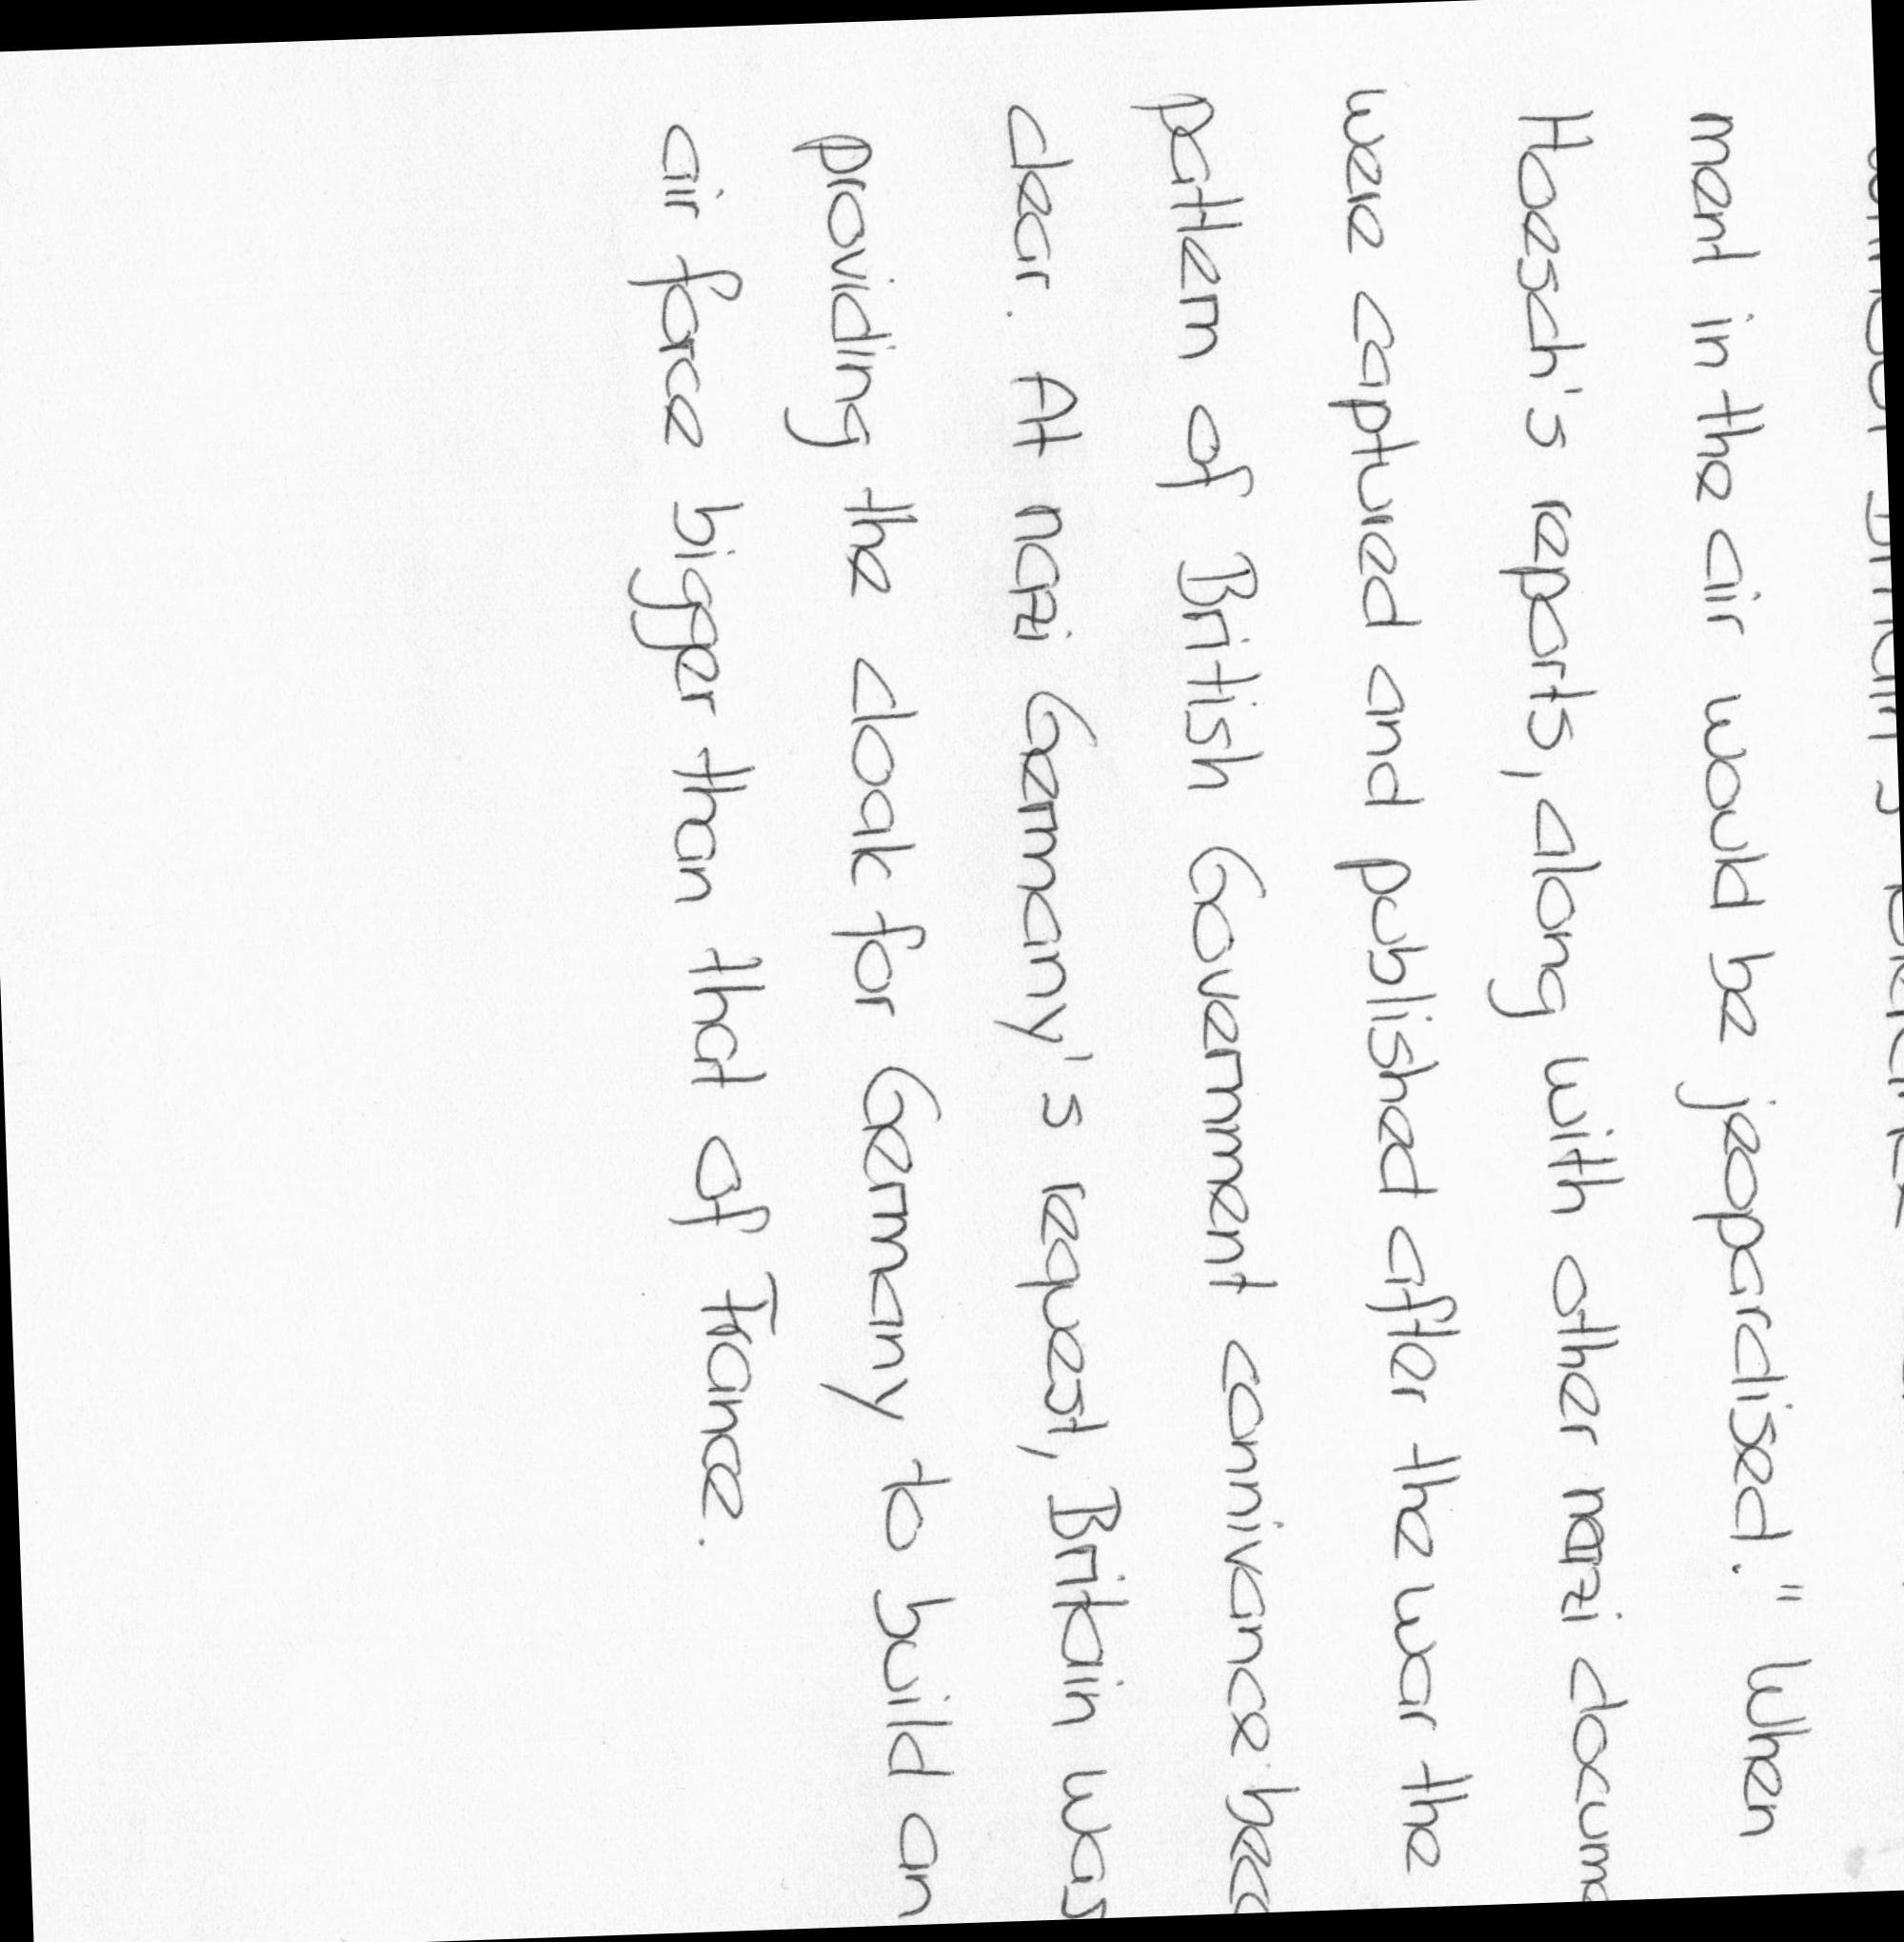 ment in the air would be jeopardised." When
Hoesch's reports, along with other nazi
were captured and published after the war the
pattern of British Government connivance
clear. At nazi Germany's request, Britain was
providing the cloak for Germany to build an
air force bigger than that of France.